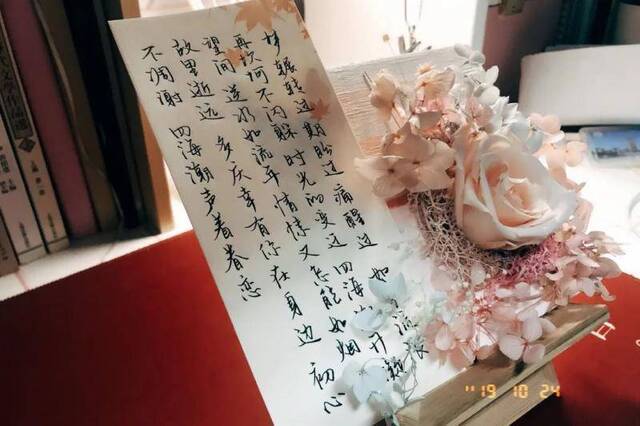 梦辗转过期盼过痛醒过 如 流浪
再坎坷不闪躲 时光的变迁 四海 开
望 逆水如流年 情愫又怎能如烟 初心
故里逝远 多庆幸有你在身边
不凋谢 四海潮声着眷恋
'19 10 24